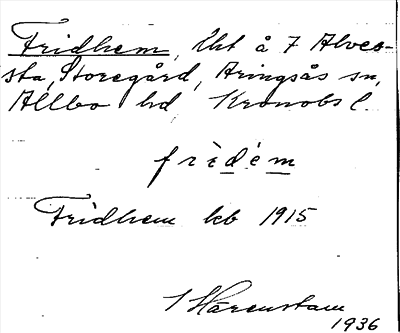 Fridhem, Lht å 7 Alves-
ta, Storegård, Aringsås sn,
Allbo hd Kronobs l.
frìdém
Fridhem kb 1915
I Härenstam
1936